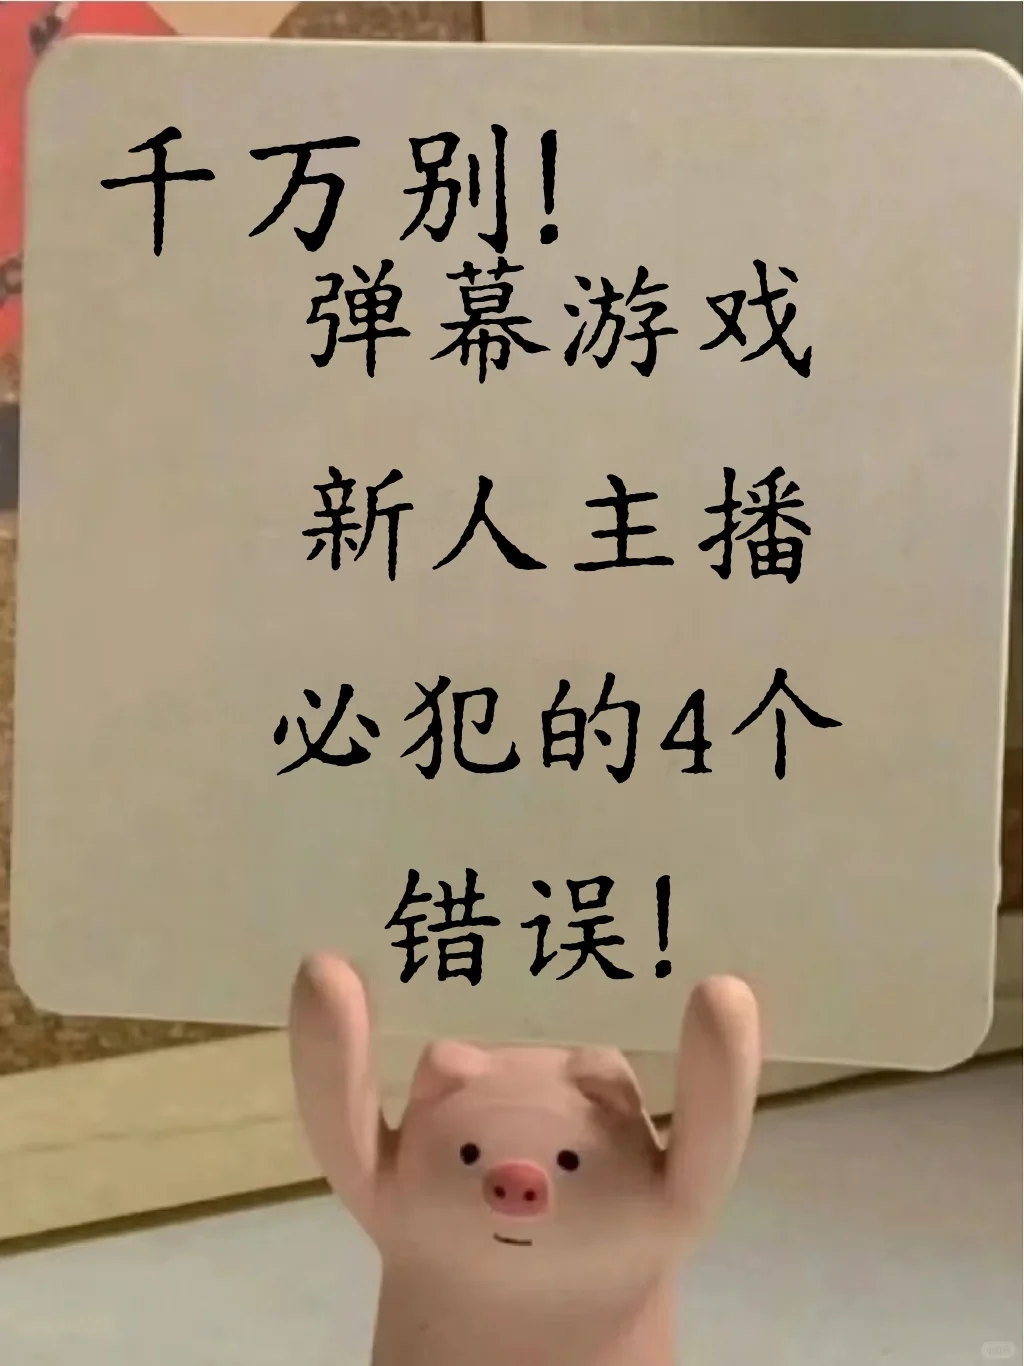 千万别!
弹幕游戏
新人主播
必犯的4个
错误!